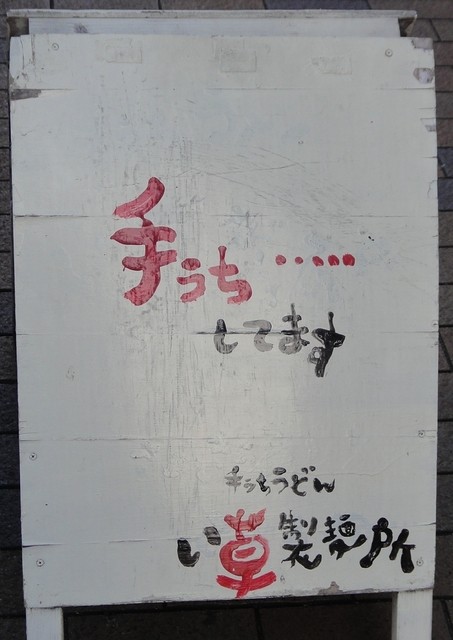 手うち·····
してます
手うちうどん
い草製麺所